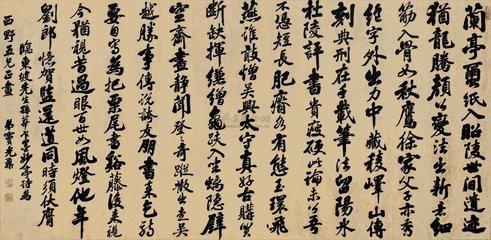 蘭亭繭紙入昭陵世間遺迹
猶龍騰顏公變法出新意細
筋入骨如秋鷹徐家父子亦秀
絕字外出力中藏稜嶧山傳
刻典刑在千載筆法留陽冰
杜陵評書貴瘦硬此論未公吾
不憑短長肥瘠各有態玉環飛
燕誰敢憎吳興太守真好古購買
斷缺揮縑繒龜趺入坐螭隱壁
空齋晝靜聞登登奇蹤散出走吳
越勝事傳說誇友朋書來乞詩
要自寫為把栗尾書谿藤後來視
今猶視昔過眼百世如風燈他年
劉郎憶賀監還道同時須服膺
臨東坡先生孫莘老求墨妙亭詩為
西野五兄正
弟